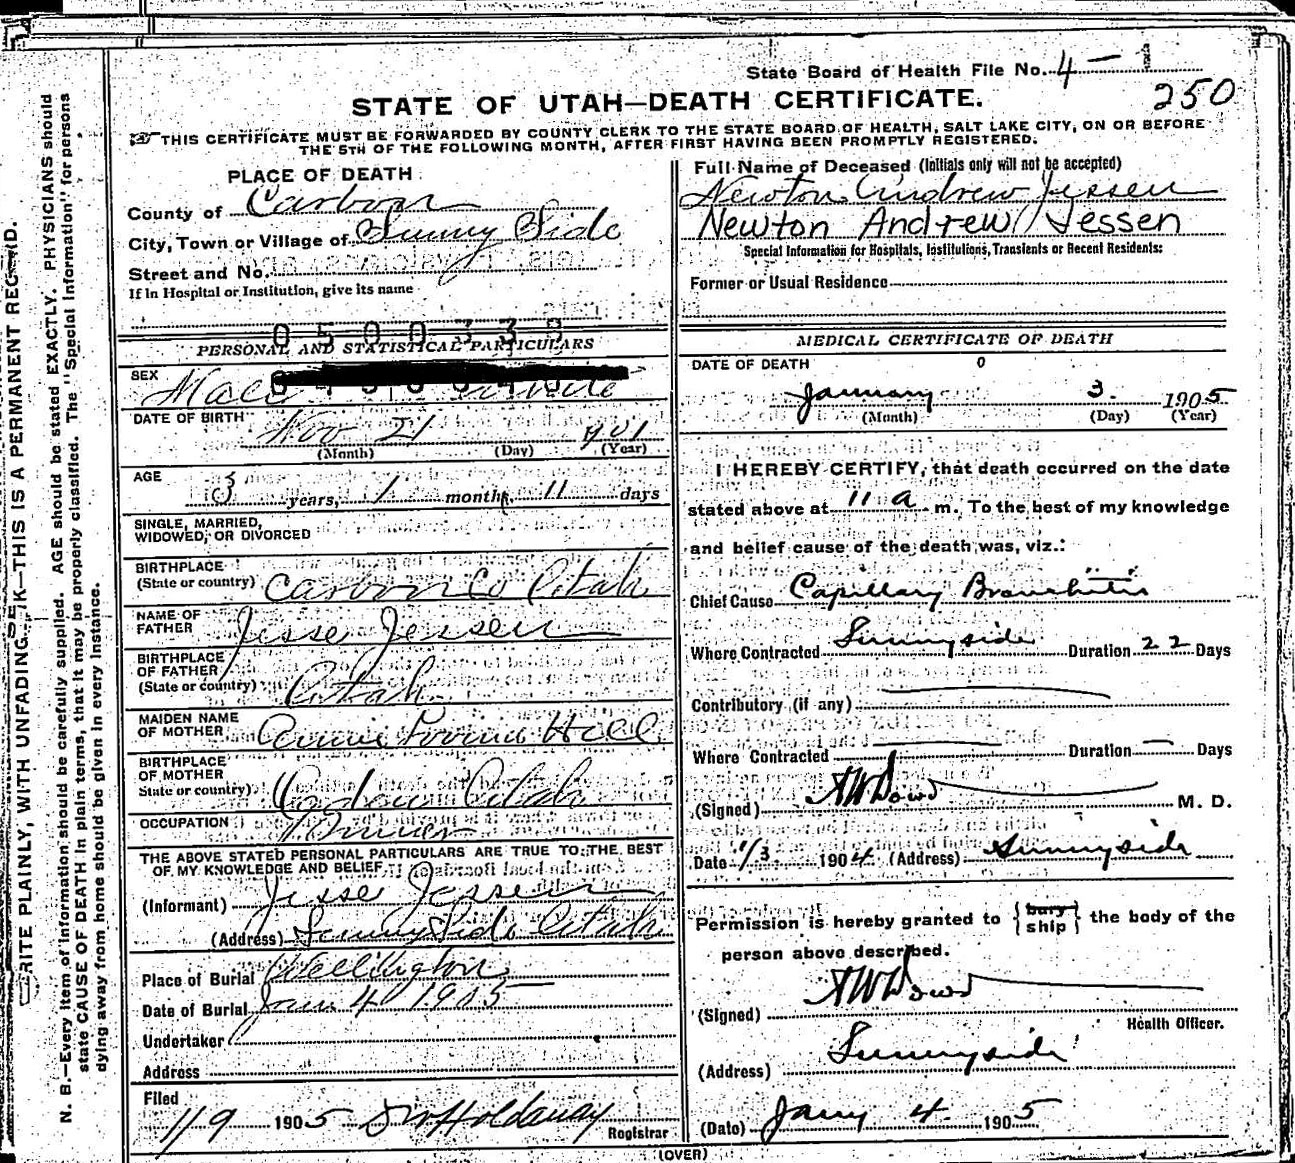 State Board of Health File No. 4-1
250
STATE OF UTAH—DEATH CERTIFICATE.
THIS CERTIFICATE MUST BE FORWARDED BY COUNTY CLERK TO THE STATE BOARD OF HEALTH, SALT LAKE CITY, ON OR BEFORE
THE 5TH OF THE FOLLOWING MONTH, AFTER FIRST HAVING BEEN PROMPTLY REGISTERED.
WRITE PLAINLY, WITH UNFADING INK—THIS IS A PERMANENT RECORD.
N. B.—Every item of information should be carefully supplied. AGE should be stated EXACTLY. PHYSICIANS should
state CAUSE OF DEATH in plain terms, that it may be properly classified. The "Special Information" for persons
dying away from home should be given in every instance.
PLACE OF DEATH
County of Carbon
City, Town or Village of Sunny Side
Street and No.
If in Hospital or Institution, give its name
0500333
PERSONAL AND STATISTICAL PARTICULARS
SEX
Male White
DATE OF BIRTH
Nov 21 1901
(Month) (Day) (Year)
AGE
3 years, 1 months, 11 days
SINGLE, MARRIED,
WIDOWED, OR DIVORCED
BIRTHPLACE
(State or country) Carbon Co Utah
NAME OF
FATHER Jesse Jessen
BIRTHPLACE
OF FATHER
(State or country) Utah
MAIDEN NAME
OF MOTHER Annie Hill
BIRTHPLACE
OF MOTHER
State or country) Utah
OCCUPATION
THE ABOVE STATED PERSONAL PARTICULARS ARE TRUE TO THE BEST
OF MY KNOWLEDGE AND BELIEF
(Informant) Jesse Jessen
(Address) Sunny Side Utah
Place of Burial Wellington
Date of Burial Jan 4 1905
Undertaker
Address
Filed
1/9 1905 Holdaway
Registrar
(OVER)
Full Name of Deceased (Initials only will not be accepted)
Newton Andrew Jessen
Newton Andrew Jessen
Special Information for Hospitals, Institutions, Transients or Recent Residents:
Former or Usual Residence
MEDICAL CERTIFICATE OF DEATH
DATE OF DEATH
January 3. 1905
(Month) (Day) (Year)
I HEREBY CERTIFY, that death occurred on the date
stated above at 11 a m. To the best of my knowledge
and belief cause of the death was, viz.:
Chief Cause Capillary Bronchitis
Where Contracted Sunnyside Duration 22 Days
Contributory (if any)
Where Contracted Duration — Days
(Signed) AW Dowd M. D.
Date 1/3 1904 (Address) Sunnyside
Permission is hereby granted to {bury
ship} the body of the
person above described.
(Signed) AW Dowd
Health Officer.
(Address) Sunnyside
(Date) Jany 4 1905